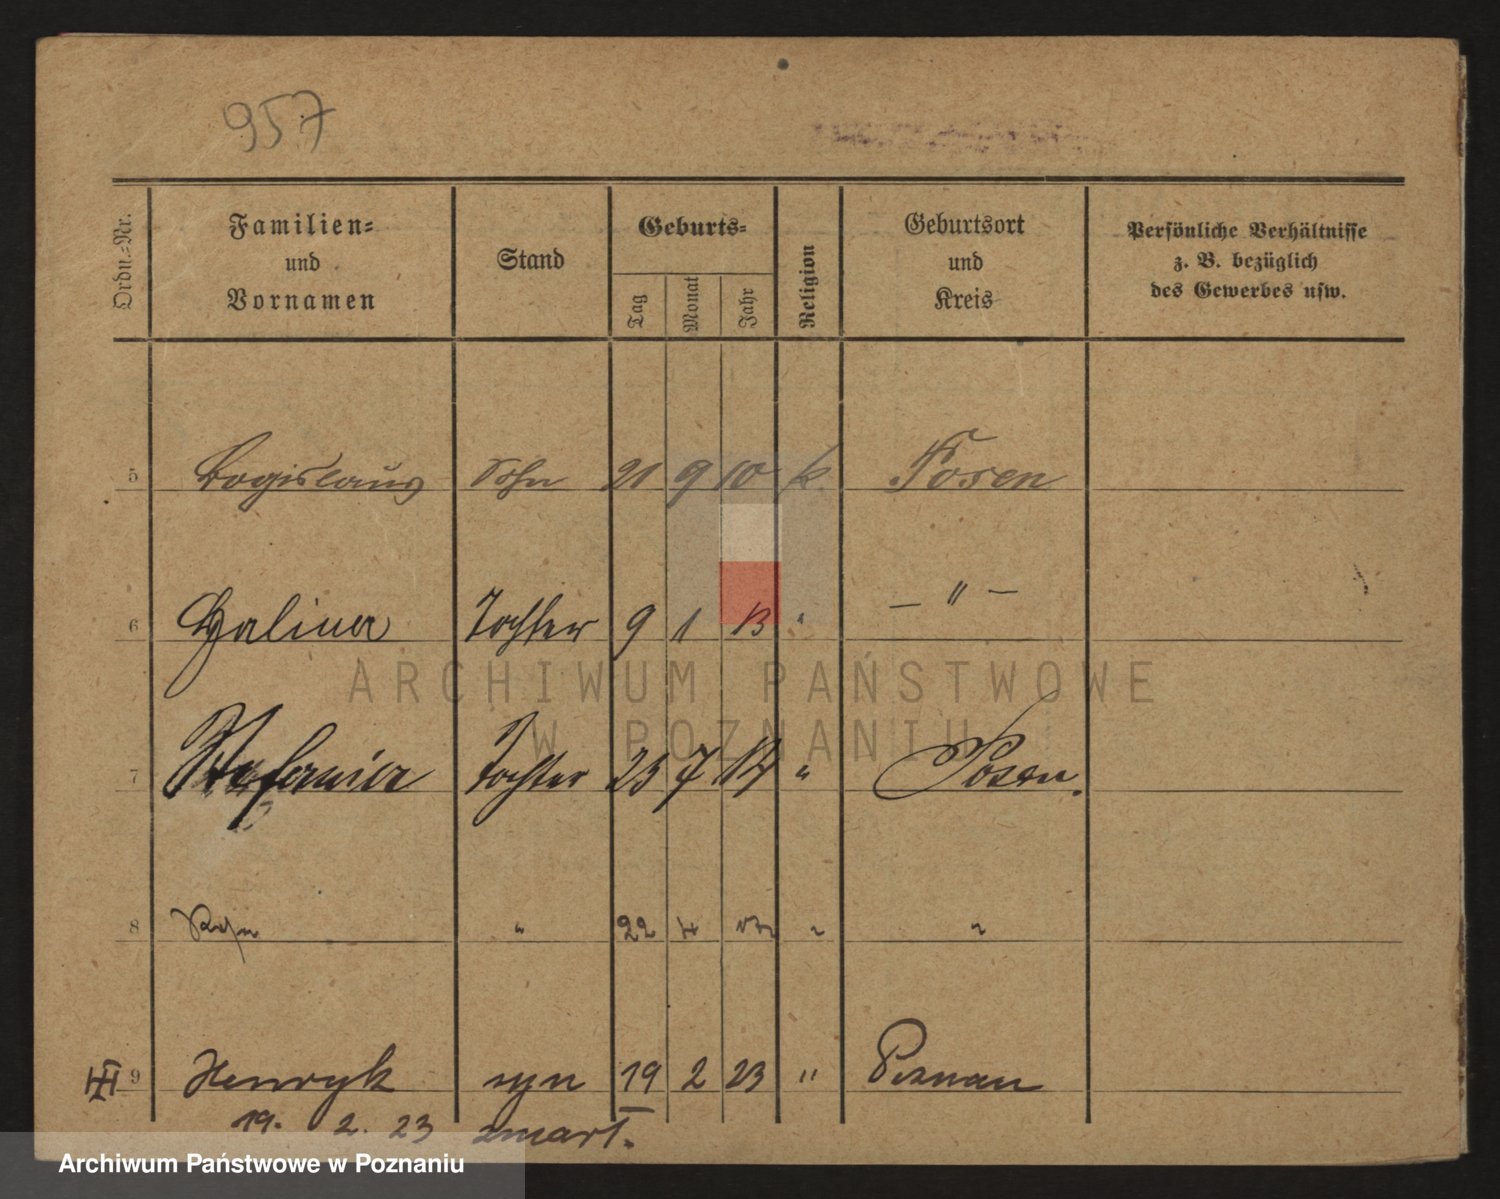 957
Ordn.-Nr.
Familien-
und
Vornamen
Stand
Geburts-
Tag
Monat
Jahr
Religion
Geburtsort
und
Kreis
Persönliche Verhältnisse
z. B. bezüglich
des Gewerbes usw.
5 Bogislaus Sohn 21 9 10 k. Posen
6 Halina Tochter 9 1 13 " — " —
ARCHIWUM PAŃSTWOWE
W POZNANIU
7 Stefania Tochter 25 7 14 " Posen.
8 " 22 4 " "
9 Henryk syn 19 2 23 " Poznan
19. 2. 23 zmarł.
Archiwum Państwowe w Poznaniu